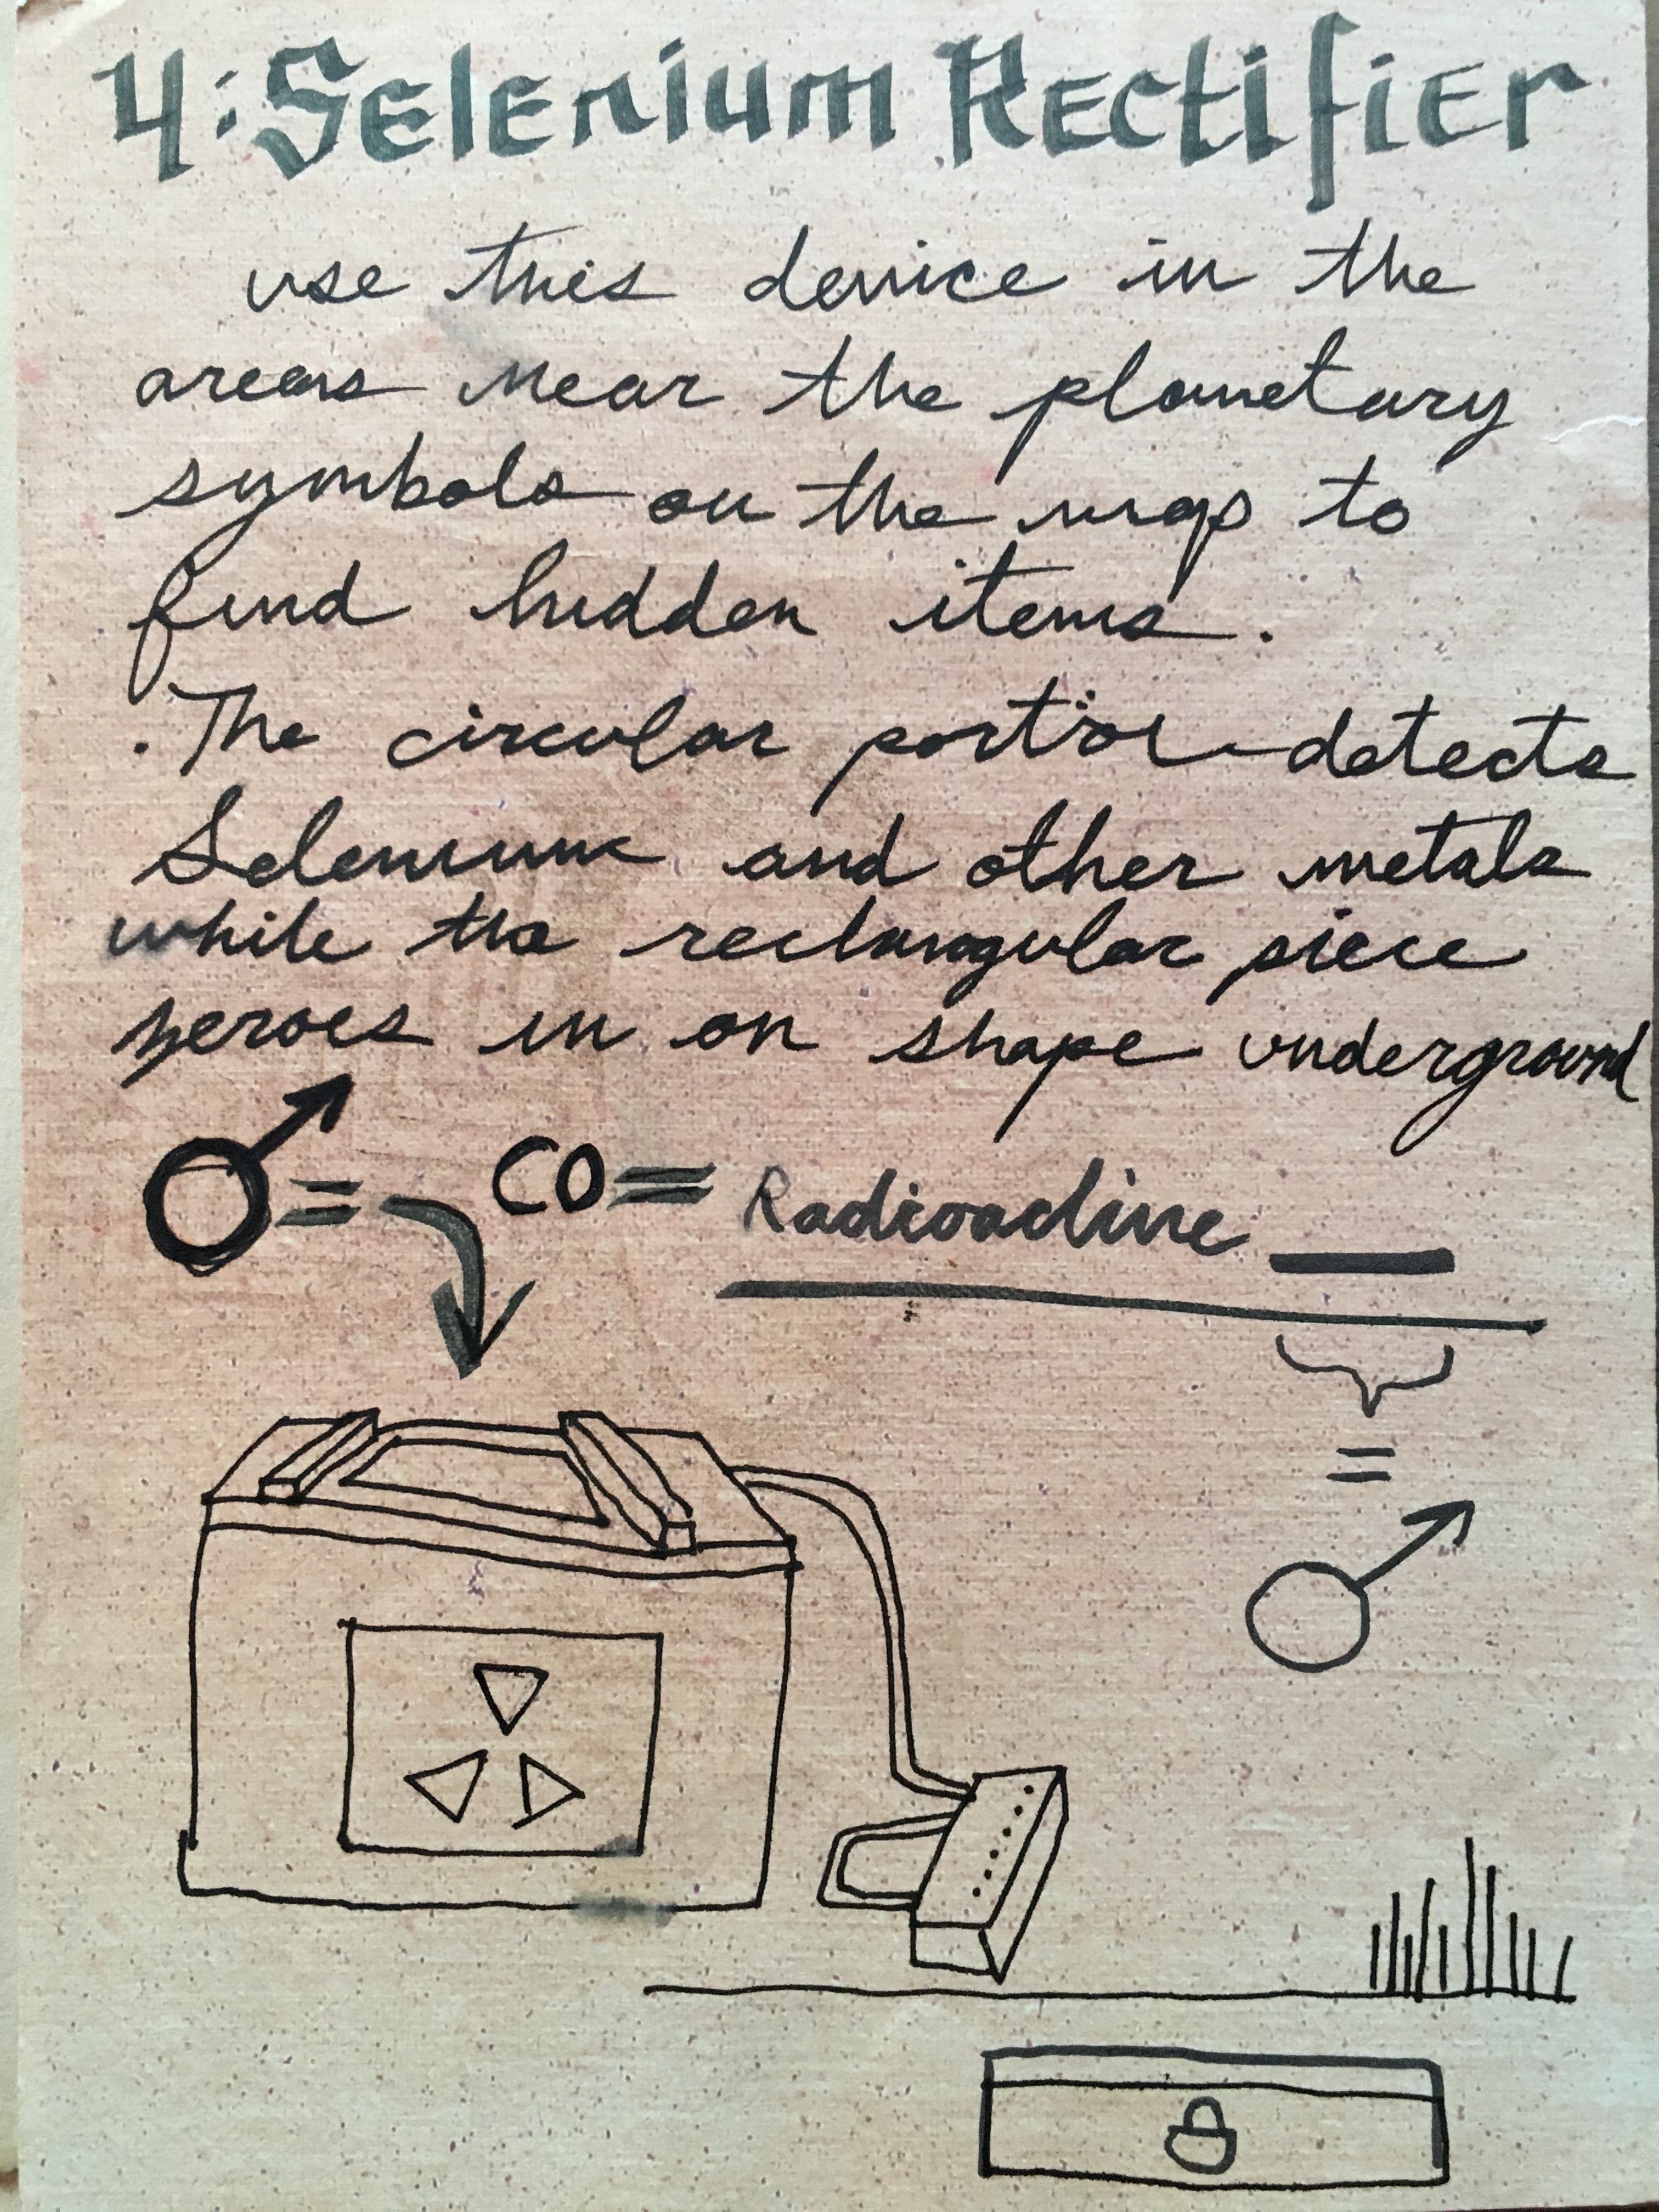 4: Selenium Rectifier
use this device in the
areas near the planetary
symbols on the map to
find hidden items.
. The circular portion detects
Selenium and other metals
while the rectangular piece
zeroes in on shape underground
♂ = CO = Radioactive
=
♂